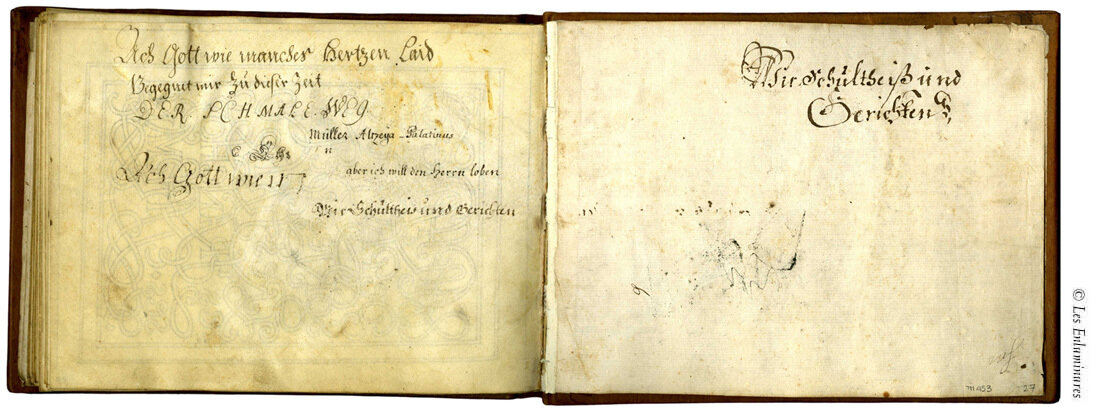 Ach Gott wie mancher Hertzen Laid
Begegnet mir zu dieser Zeit
DER. SCHMALE. WEG.
Müller Altzeÿa-Palatinus
n
aber ich will den Herrn loben
Ach Gott wie
Wir Schultheis und Gerichten
Wir Schultheiß und
Gerichten
9
m 453
27
© Les Enluminures